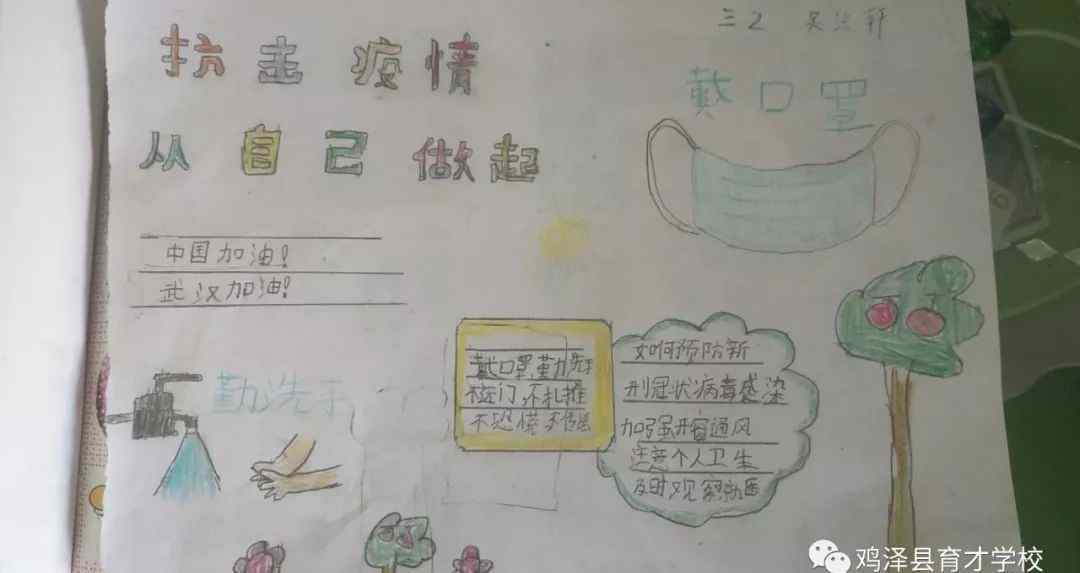 三2
抗击疫情
戴口罩
从自己做起
中国加油!
武汉加油!
勤洗手
戴口罩,勤洗手
不扎推
不恐慌
如何预防新
型冠状病毒感染
加强开窗通风
注意个人卫生
及时观察就医
鸡泽县育才学校